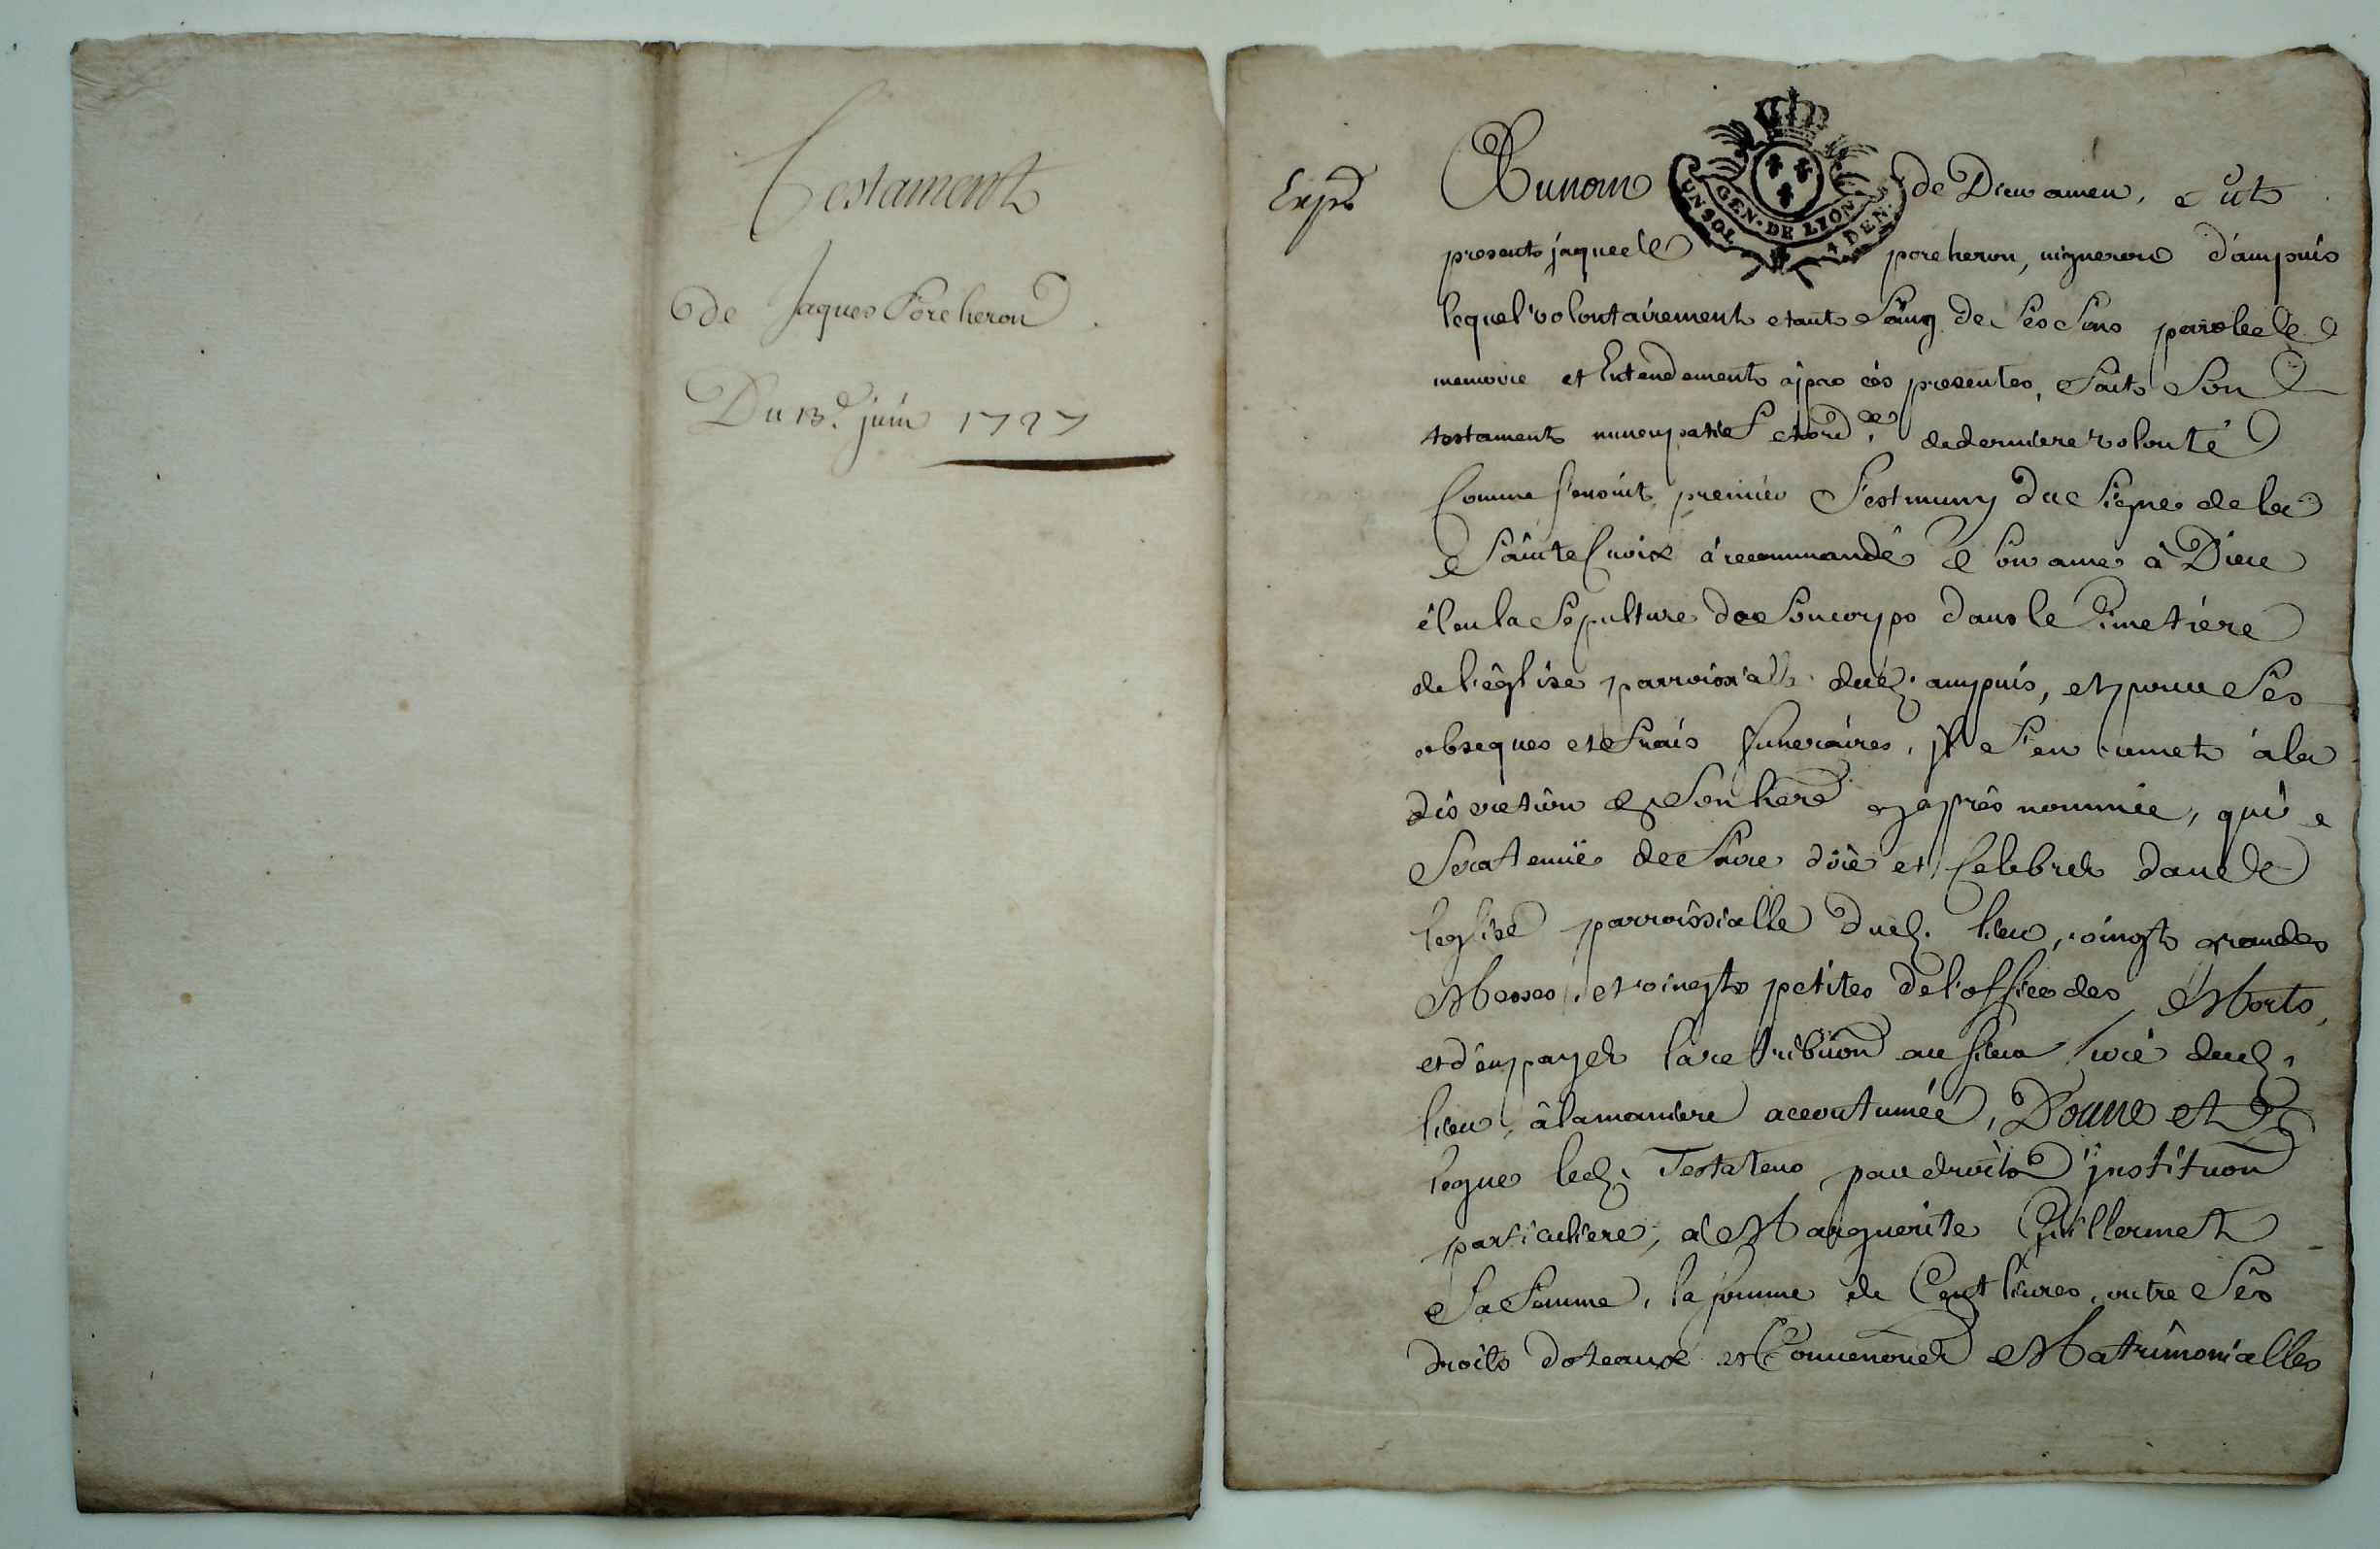 Testament
de Jaques Porcheron
Du 13e juin 1727
Exp.
Au nom de Dieu amen, fut
GEN. DE LION
UN SOL 4 DEN.
present jaques porcheron, vigneron d'ampuis
lequel volontairement etant sain de ses sens parolle
memoire et Entendement a par ces presentes, fait son
testament nuncupatif et ord.ce de derniere volonté
Comme s'ensuit, premier s'est muny du signe de la
Sainte Croix à recommandé son ame à Dieu
éleu la sepulture de son corps dans le Cimetiere
de l'église parroissialle dud. ampuis, et pour ses
obseques et frais funeraires, jl s'en remet à la
discretion de son here cy après nommée, qui
sera tenüe de faire dire et Celebrer dans
leglise parroissialle dud. lieu, vingt grandes
Messes, et vingt petites de l'office des Morts,
et d'en payer la retribuon au sieur Curé dud.
lieu, à la maniere accoutumée, Donne et
legue led. Testateur par droit d'jnstituon
particuliere, à Marguerite Guillermet
sa femme, la somme de Cent livres, outre ses
droits doteaux et Matrimonialles